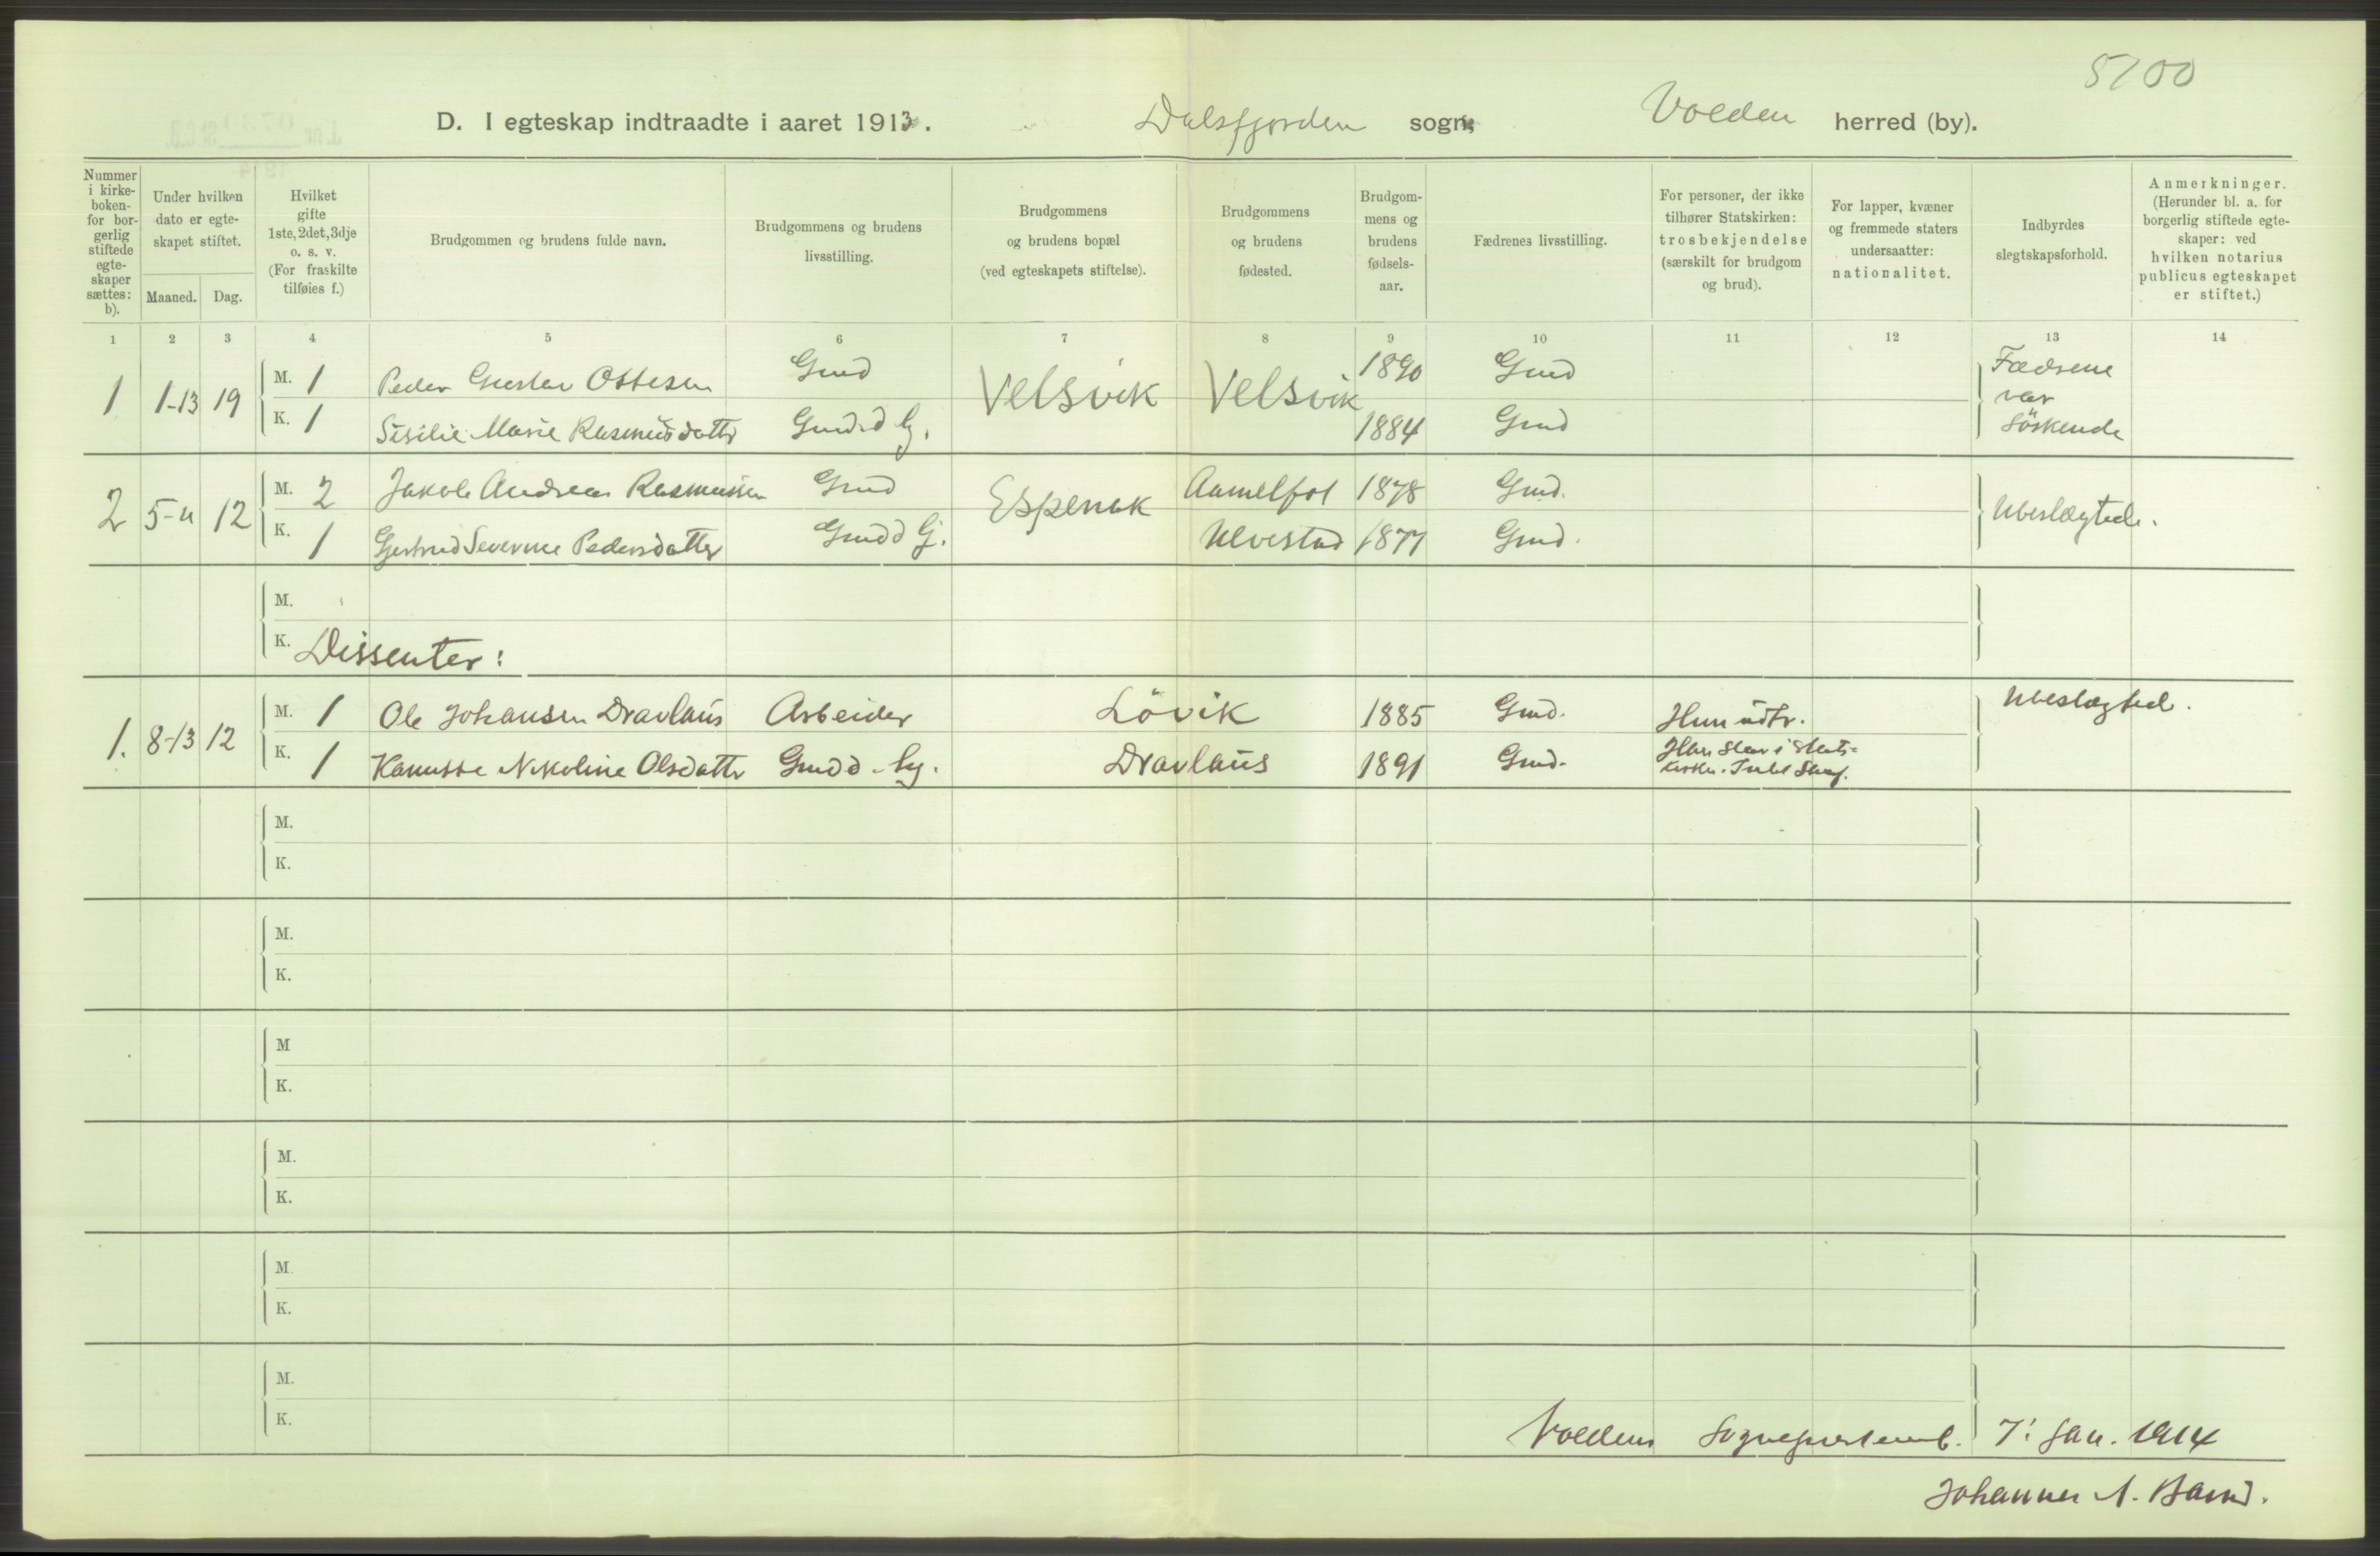 5700
D. I egteskap indtraadte i aaret 1913. Dalsfjorden sogn, Volden herred (by).
Nummer i kirke-boken- for bor-gerlig stiftede egte-skaper sættes: b).
Under hvilken dato er egte-skapet stiftet.
Maaned. Dag.
Hvilket gifte 1ste, 2det, 3dje o. s. v. (For fraskilte tilføies f.)
Brudgommen og brudens fulde navn.
Brudgommens og brudens livsstilling.
Brudgommens og brudens bopæl (ved egteskapets stiftelse).
Brudgommens og brudens fødested.
Brudgom-mens og brudens fødsels-aar.
Fædrenes livsstilling.
For personer, der ikke tilhører Statskirken: trosbekjendelse (særskilt for brudgom og brud).
For lapper, kvæner og fremmede staters undersaatter: nationalitet.
Indbyrdes slegtskapsforhold.
Anmerkninger. (Herunder bl. a. for borgerlig stiftede egte-skaper: ved hvilken notarius publicus egteskapet er stiftet.)
1 2 3 4 5 6 7 8 9 10 11 12 13 14
1 1-13 19 M. 1 Peder Gustav Ottesen Gmd Velsvik Velsvik 1890 Gmd Fædrene var Söskende
K. 1 Sisilie Marie Rasmusdatter Gmd.d G. 1884 Gmd
2 5-" 12 M. 2 Jakob Andreas Rasmussen Gmd Espenak Aamelfot 1878 Gmd. Ubeslægtede.
K. 1 Gertrud Severine Pedersdatter Gmdd G. Ulvestad 1877 Gmd.
M.
K. Dissenter:
1. 8-13 12 M. 1 Ole Johansen Dravlaus Arbeider Lövik 1885 Gmd. Hun udtr. Ubeslægted.
K. 1 Nikoline Olsdatter Gmdd. G. Dravlaus 1891 Gmd. Han i Stats-
M.
K.
M.
K.
M
K.
M.
K.
M.
K.
M.
K.
Voldens 7: Jan. 1914
Johannes